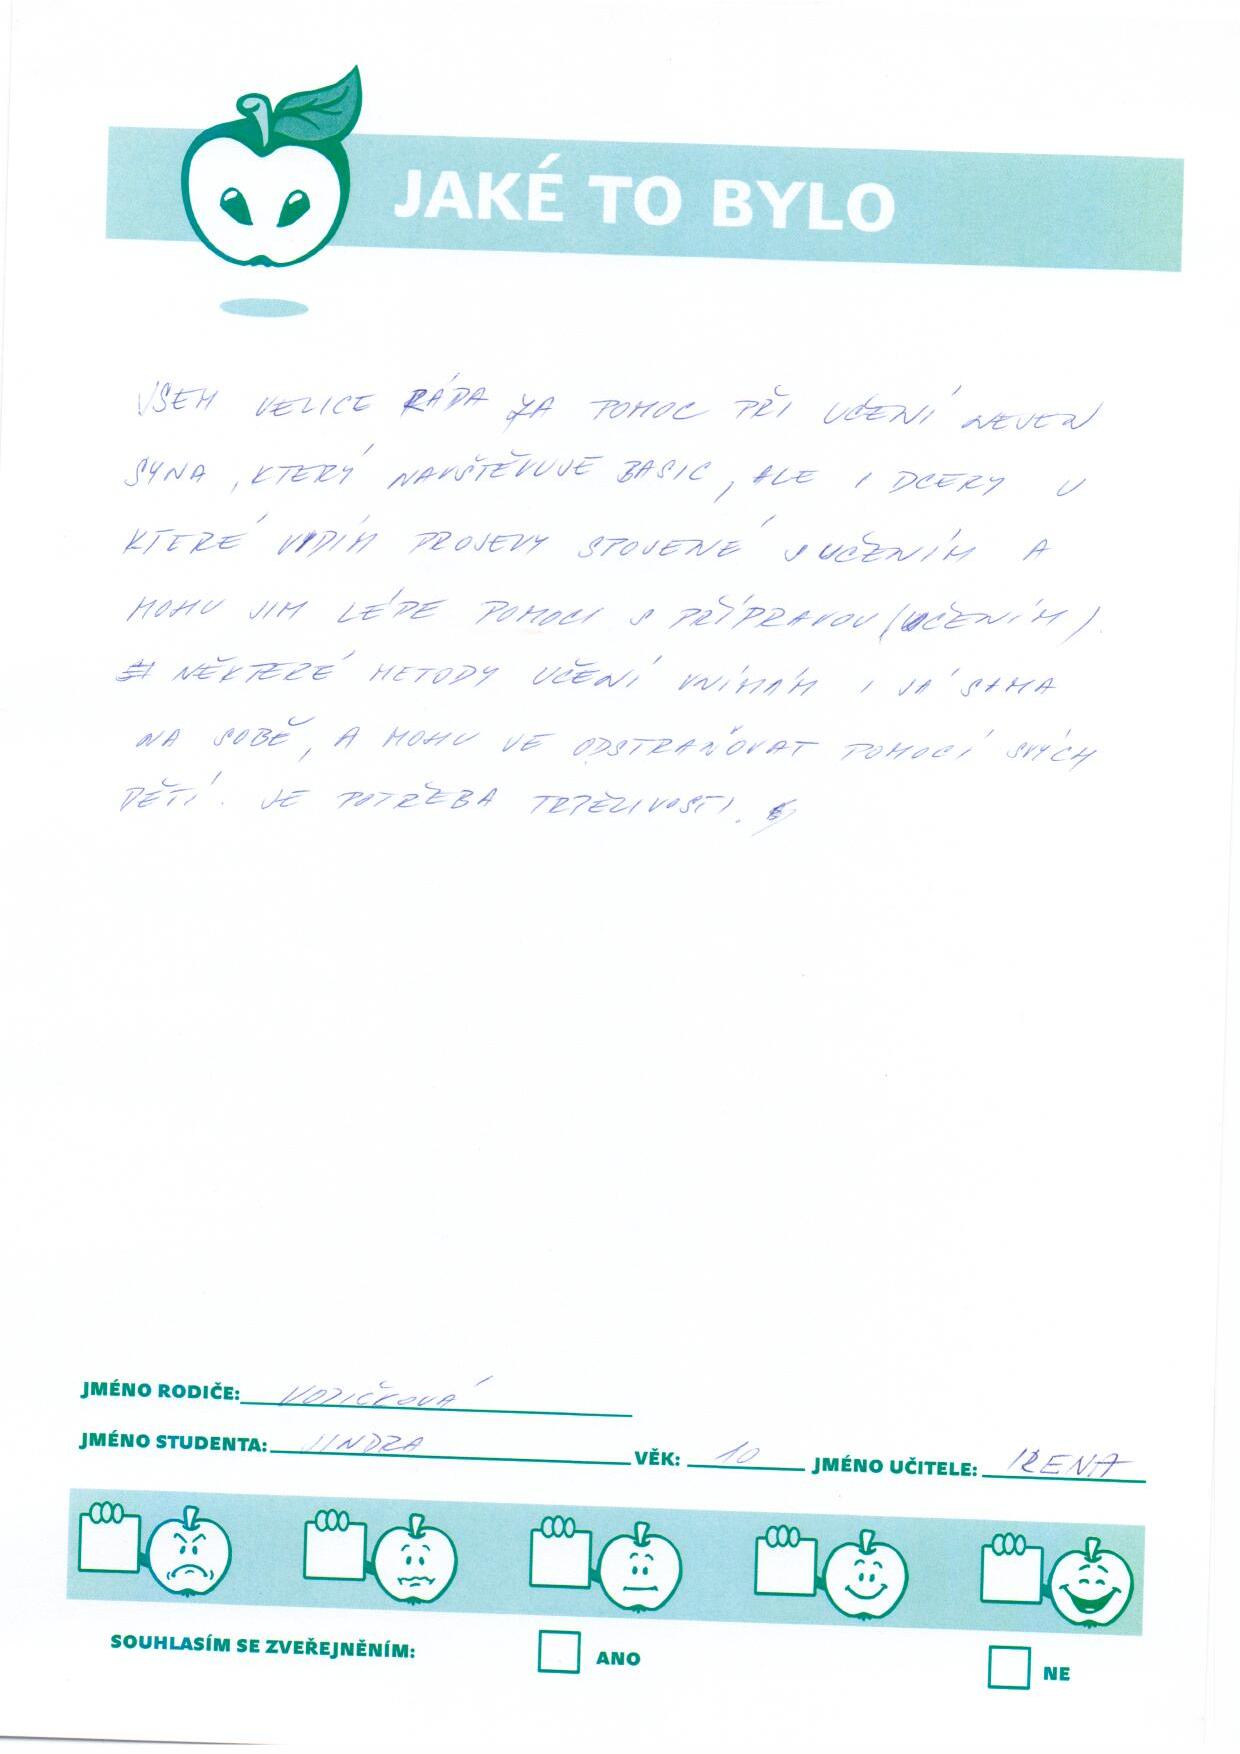 JAKÉ TO BYLO
JSEM VELICE RÁDA ZA POMOC PŘI UČENÍ NEJEN
SYNA, KTERÝ NAVŠTĚVUJE BASIC, ALE I DCERY U
KTERÉ VIDÍM PROJEVY SPOJENÉ S UČENÍM A
MOHU JIM LÉPE POMOCI S PŘÍPRAVOU (UČENÍM).
NĚKTERÉ METODY UČENÍ VNÍMÁM I JÁ SAMA
NA SOBĚ, A MOHU JE ODSTRAŇOVAT POMOCÍ SVÝCH
DĚTÍ. JE POTŘEBA TRPĚLIVOSTI.
JMÉNO RODIČE: VOJIČKOVÁ
JMÉNO STUDENTA: JINDRA VĚK: 10 JMÉNO UČITELE: IRENA
SOUHLASÍM SE ZVEŘEJNĚNÍM: ANO NE